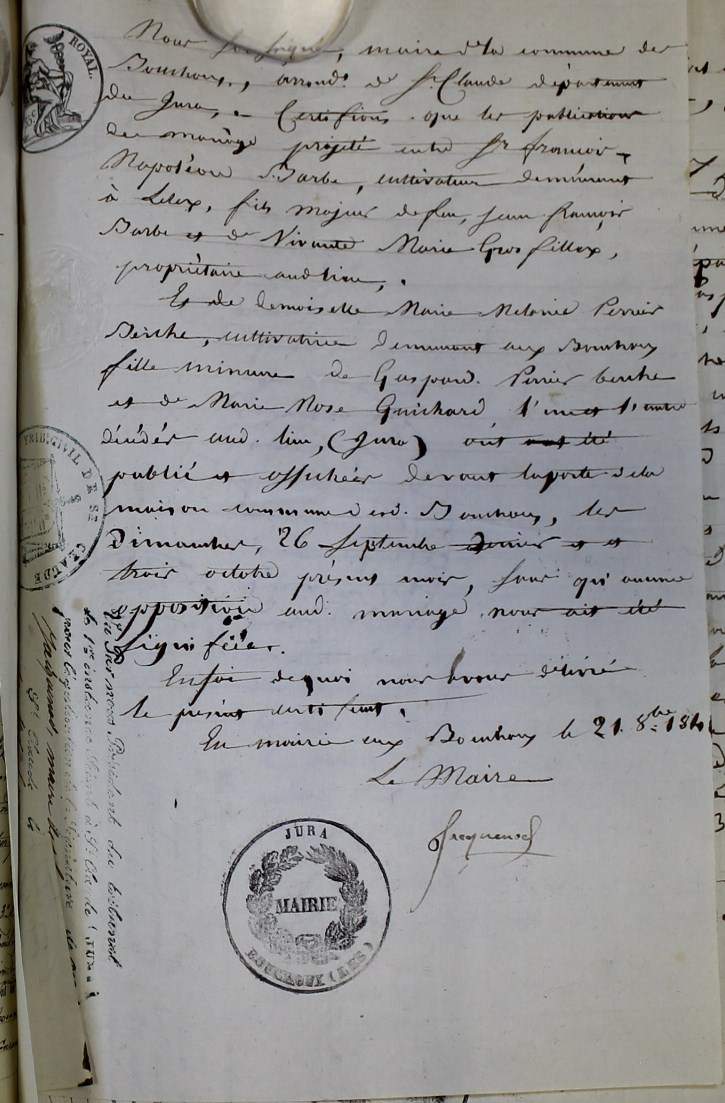 ROYAL.
Nous Soussigné, maire de la commune des
Bouchoux, arrondt. de St. Claude département
du Jura, Certifions que les publications
de mariage projeté entre Sr. françois
Napoléon Barbe, cultivateur demeurant
à Lelex, fils majeur de feu, jean françois
Barbe et de Vivante Marie Grosfillex,
propriétaire aud. lieu,
Et de demoiselle Marie Melanie Perrier
Berthe, cultivatrice demeurant aux Bouchoux
fille mineure de Gaspard. Perrier berthe
et de Marie Rose Guichard l'un et l'autre
décédés aud. lieu, (Jura) ont été
publiées et affichées devant la porte de la
maison commune desd. Bouchoux, les
Dimanches, 26 Septembre dernier et
trois octobre présent mois, sans qu'aucune
opposition aud. mariage nous ait été
Signifiée.
En foi de quoi nous avons délivré
le présent certificat.
En mairie aux Bouchoux le 21. 8bre 184
Le Maire
TRIB. CIVIL DE ST. CLAUDE
Vu par nous Président du tribunal
de 1re instance séant à St. Cde (Jura)
pour légalisation de la Signature de
maire
St. Claude le
JURA
MAIRIE
BOUCHOUX (LES)